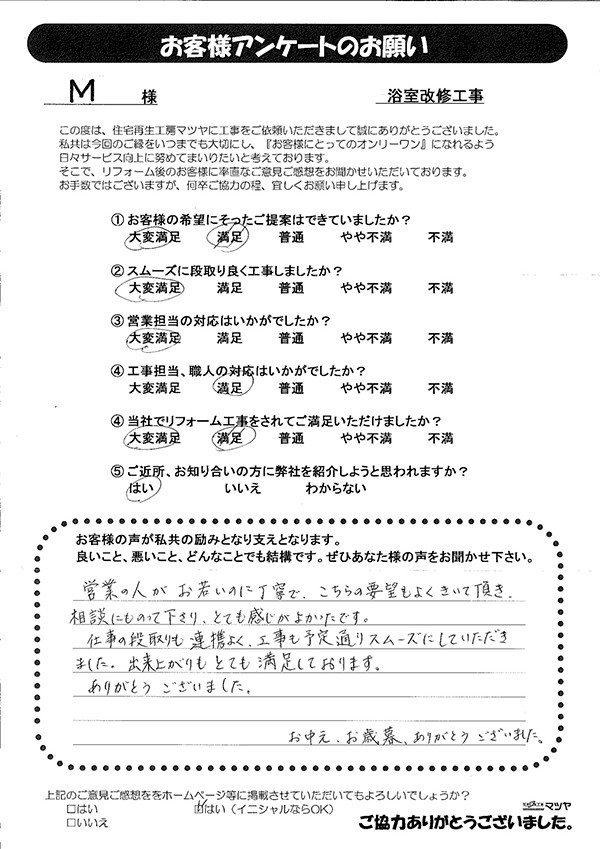 お客様アンケートのお願い
M 様 浴室改修工事
この度は、住宅再生工房マツヤに工事をご依頼いただきまして誠にありがとうございました。
私共は今回のご縁をいつまでも大切にし、『お客様にとってのオンリーワン』になれるよう
日々サービス向上に努めてまいりたいと考えております。
そこで、リフォーム後のお客様に率直なご意見ご感想をお聞かせいただいております。
お手数ではございますが、何卒ご協力の程、宜しくお願い申し上げます。
① お客様の希望にそったご提案はできていましたか？
大変満足 満足 普通 やや不満 不満
② スムーズに段取り良く工事しましたか？
大変満足 満足 普通 やや不満 不満
③ 営業担当の対応はいかがでしたか？
大変満足 満足 普通 やや不満 不満
④ 工事担当、職人の対応はいかがでしたか？
大変満足 満足 普通 やや不満 不満
④ 当社でリフォーム工事をされてご満足いただけましたか？
大変満足 満足 普通 やや不満 不満
⑤ ご近所、お知り合いの方に弊社を紹介しようと思われますか？
はい いいえ わからない
お客様の声が私共の励みとなり支えとなります。
良いこと、悪いこと、どんなことでも結構です。ぜひあなた様の声をお聞かせ下さい。
営業の人が お若いのに丁寧で、こちらの要望もよくきいて頂き、
相談にものって下さり、とても感じがよかったです。
仕事の段取りも連携よく、工事も予定通りスムーズにしていただき
ました。出来上がりもとても満足しております。
ありがとうございました。
お中元、お歳暮、ありがとうございました。
上記のご意見ご感想ををホームページ等に掲載させていただいてもよろしいでしょうか？
□はい □はい（イニシャルならOK）
□いいえ
マツヤ
ご協力ありがとうございました。